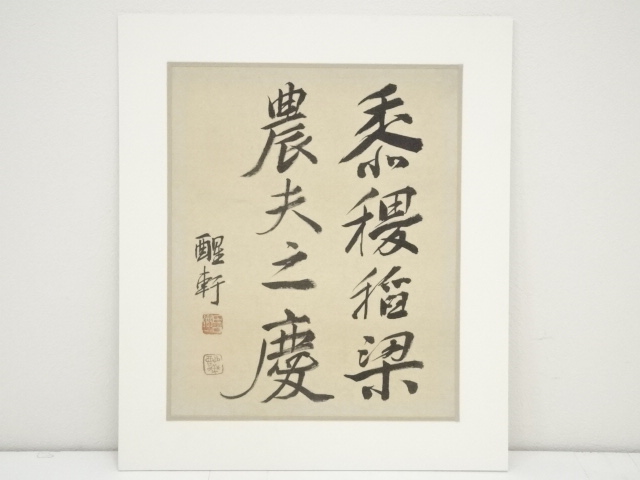 黍稷稻梁
農夫之慶
醒軒